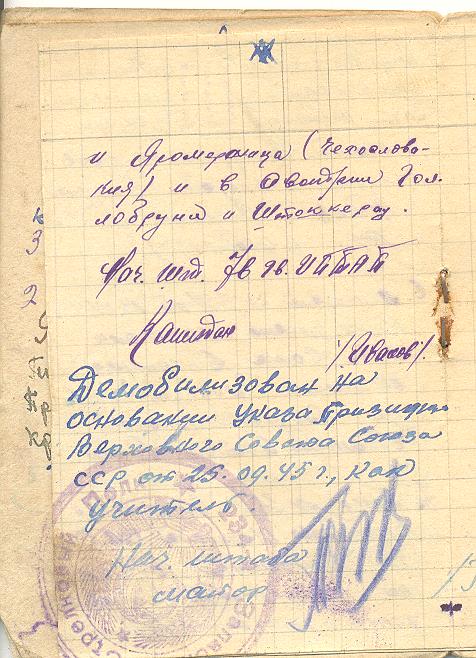 и Яромержица (Чехослова-
кия) и в Австрии Гол-
лабруна и Штоккерау.
Нач. шт. 7в гв. ИПТАП
Капитан
/Иванов/.
Демобилизован на
основании Указа Презид.
Верховного Совета Союза
ССР от 25.09.45 г., как
учитель.
Нач. штаба
майор